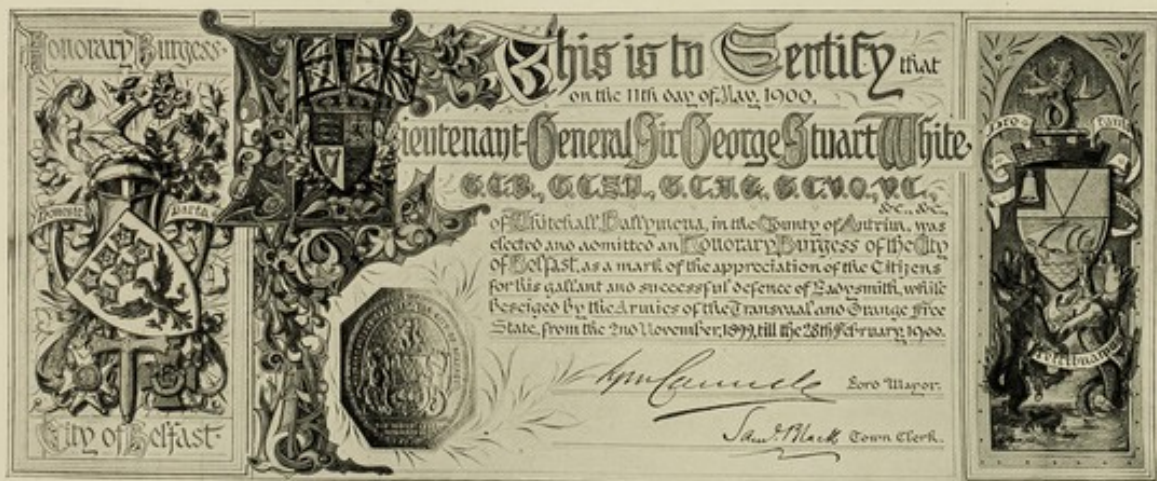 Honorary Burgess.
Honeste Parta
City of Belfast.
This is to Certify that
on the 11th day of May, 1900,
Lieutenant-General Sir George Stuart White
G.C.B., G.C.S.I., G.C.M.G., G.C.V.O., V.C.,
&c., &c.,
of Whitehall, Ballymena, in the County of Antrim, was
elected and admitted an Honorary Burgess of the City
of Belfast, as a mark of the appreciation of the Citizens
for his gallant and successful defence of Ladysmith, while
besieged by the Armies of the Transvaal and Orange Free
State, from the 2nd November, 1899, till the 28th February, 1900.
Lord Mayor.
Saml. Black Town Clerk.
Pro tanto
retribuamus